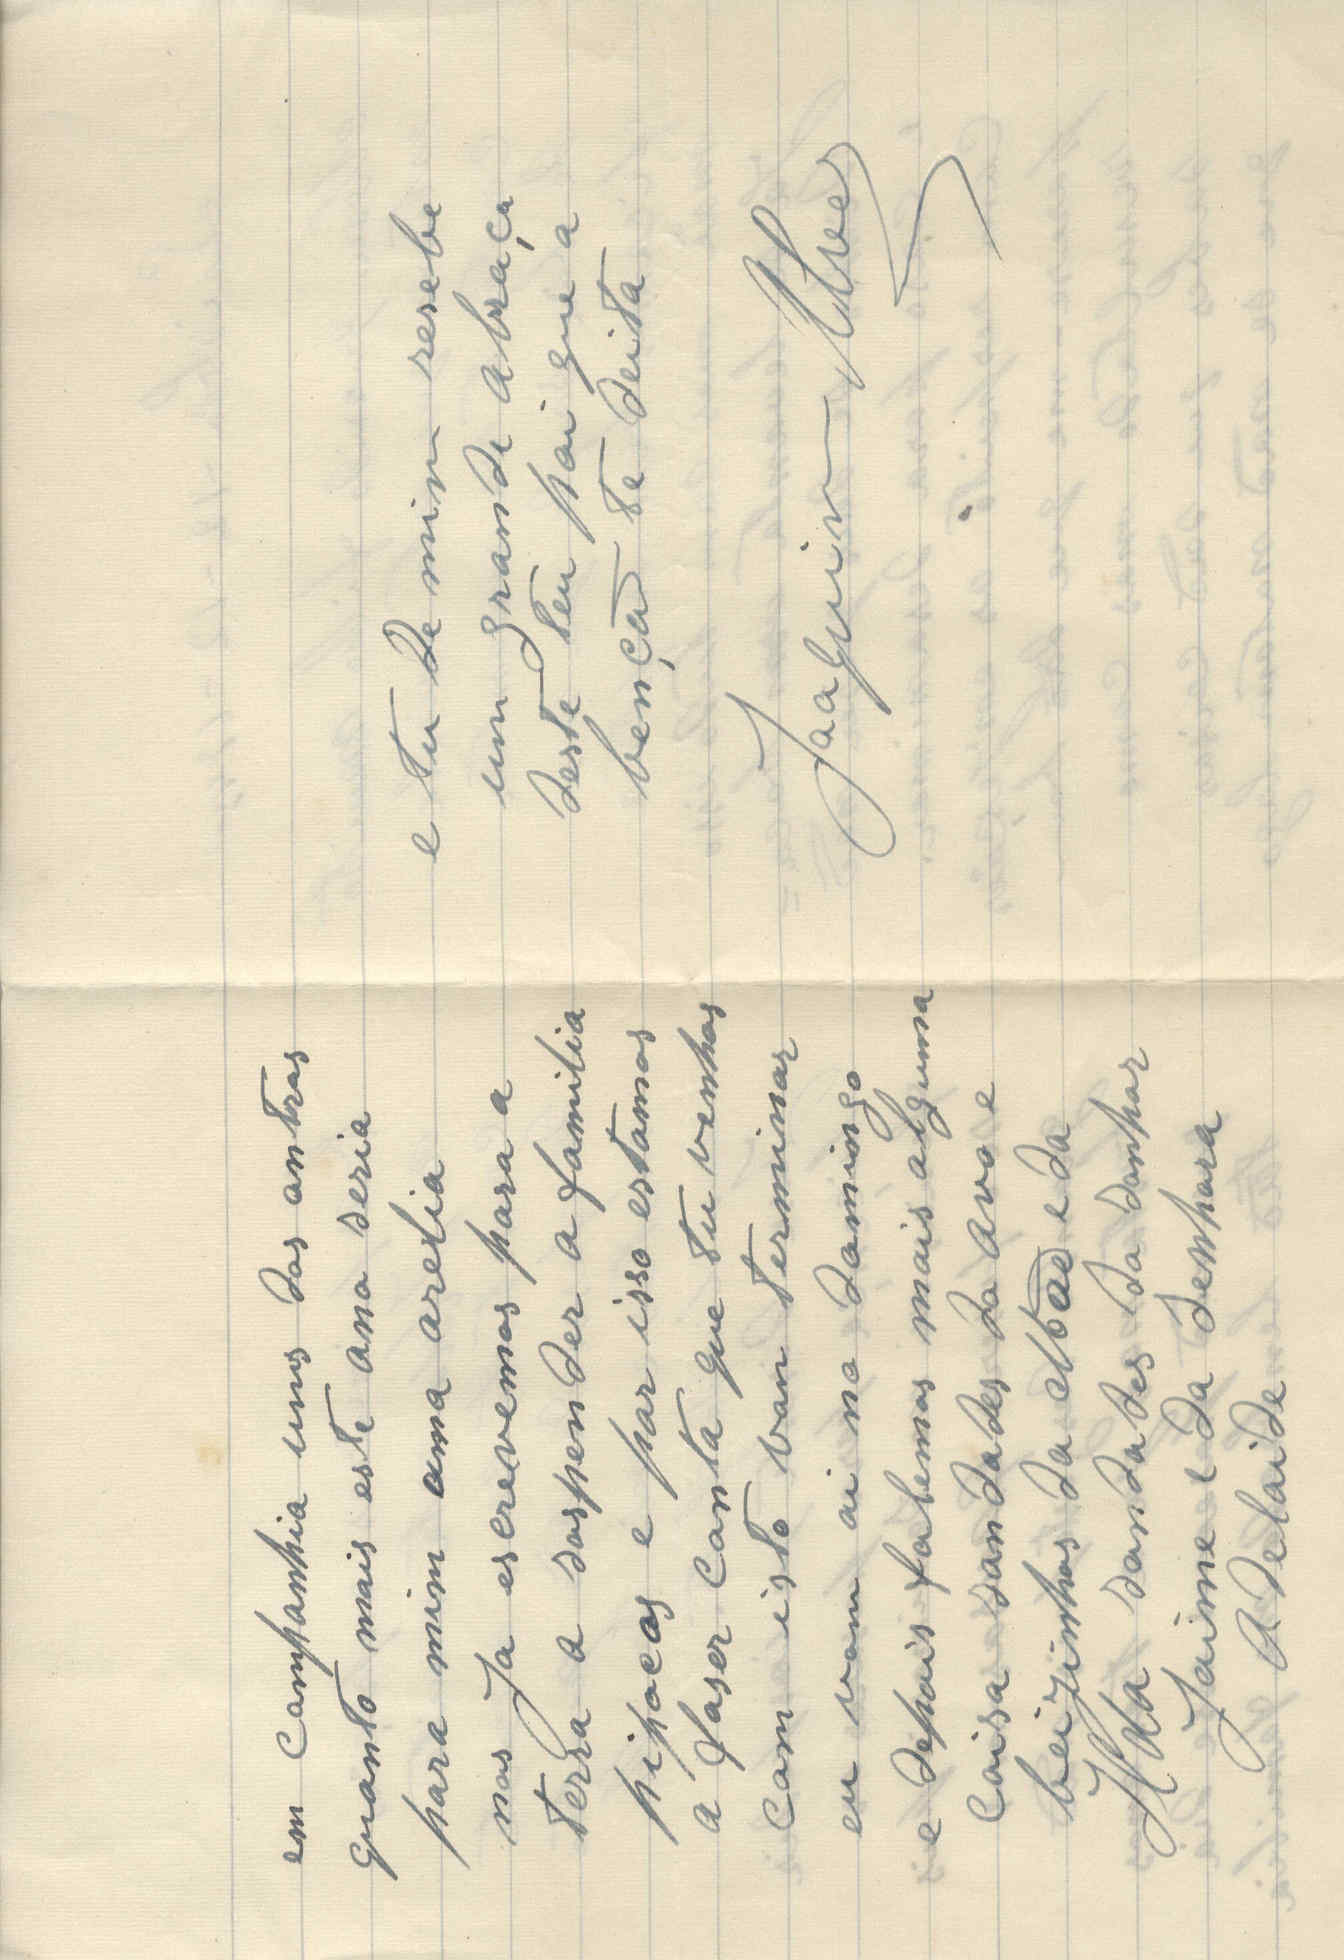 em companhia uns dos antros
quanto mais este ano seria
para mim uma arelia
nos Ja escrevemos para a
terra a suspender a familia
pipocas e por isso estamos
a faser conta que tu venhas
com isto vou terminar
eu vou ai no domingo
e depois falemos mais alguma
coisa saudades da avo e
beijinhos da e da
saudades da senhor
Jaime e da senhora
Adelaide
e tu de mim resebe
um grande abraça
deste teu pai que a
bençaõ te deita
Joaquim Alves